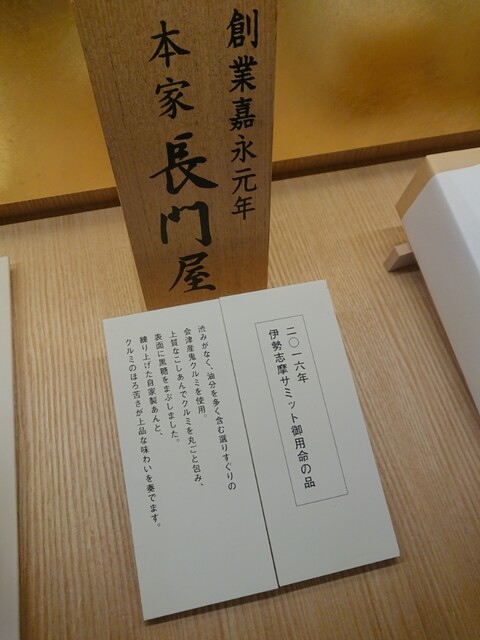 創業嘉永元年
本家長門屋
二〇一六年
伊勢志摩サミット御用命の品
渋みがなく、油分を多く含む選りすぐりの
会津産鬼クルミを使用。
上質なこしあんでクルミを丸ごと包み、
表面に黒糖をまぶしました。
練り上げた自家製あんと、
クルミのほろ苦さが上品な味わいを奏でます。